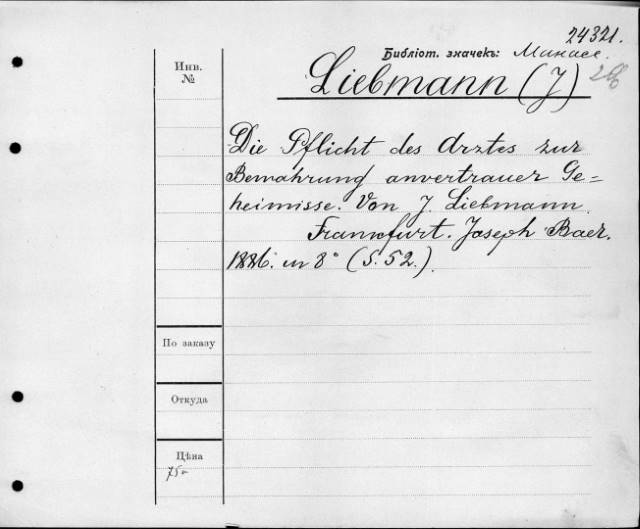 24321.
Библіот. значекъ: Манасе.
Инв.
№
Liebmann (J)
Die Pflicht des Arztes zur
Bewahrung anvertrauer Ge=
heimisse. Von J. Liebmann.
Frankfurt. Joseph Baer.
1886. in 8° (S. 52.).
По заказу
Откуда
Цѣна